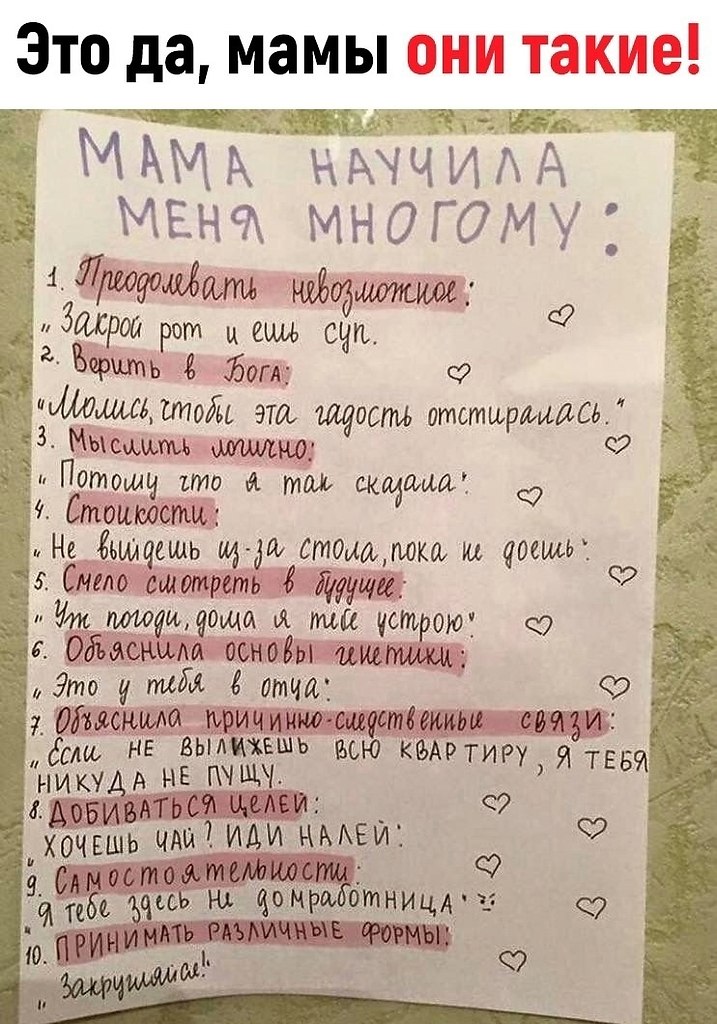 Это да, мамы они такие!
МАМА НАУЧИЛА
МЕНЯ МНОГОМУ:
1. Преодолевать невозможное:
„Закрой рот и ешь суп.
2. Верить в Бога:
"Молись, чтобы эта гадость отстиралась."
3. Мыслить логично:
"Потому что я так сказала".
4. Стоикости:
"Не выйдешь из-за стола, пока не доешь".
5. Смело смотреть в будущее:
"Уж погоди, дома я тебе устрою"
6. Объяснила основы генетики:
„Это у тебя в отца".
7. Объяснила причинно-следственные связи:
„Если НЕ ВЫЛИЖЕШЬ ВСЮ КВАРТИРУ, Я ТЕБЯ
НИКУДА НЕ ПУЩУ.
8. ДОБИВАТЬСЯ ЦЕЛЕЙ:
„ХОЧЕШЬ ЧАЙ? ИДИ НАЛЕЙ".
9. Самостоятельности:
"Я тебе здесь не домработница"
10. ПРИНИМАТЬ РАЗЛИЧНЫЕ ФОРМЫ:
„Закругляйся!"